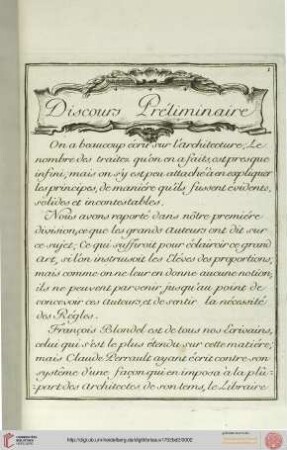 1
Discours Préliminaire
On a beaucoup écrit sur l'architecture; Le
nombre des traites qu'on en a faits, est presque
infini; mais on s'y est peu attaché à en expliquer
les principes, de maniére qu'ils fussent évidents,
solides et incontestables.
Nous avons raporté dans nôtre premiére
division, ce que les grands Auteurs ont dit sur
ce sujet; Ce qui suffiroit pour éclaircir ce grand
Art, si l'on instruisoit les Eléves des proportions;
mais comme on ne leur en donne aucune notion;
ils ne peuvent parvenir jusqu'au point de
concevoir ces Auteurs, et de sentir la nécessité
des Régles.
François Blondel est de tous nos Ecrivains,
celui qui s'est le plus étendu sur cette matiére;
mais Claude Perrault ayant écrit contre son
systême d'une façon qui en imposa à la plû-
part des Architectes de son tems, le Libraire